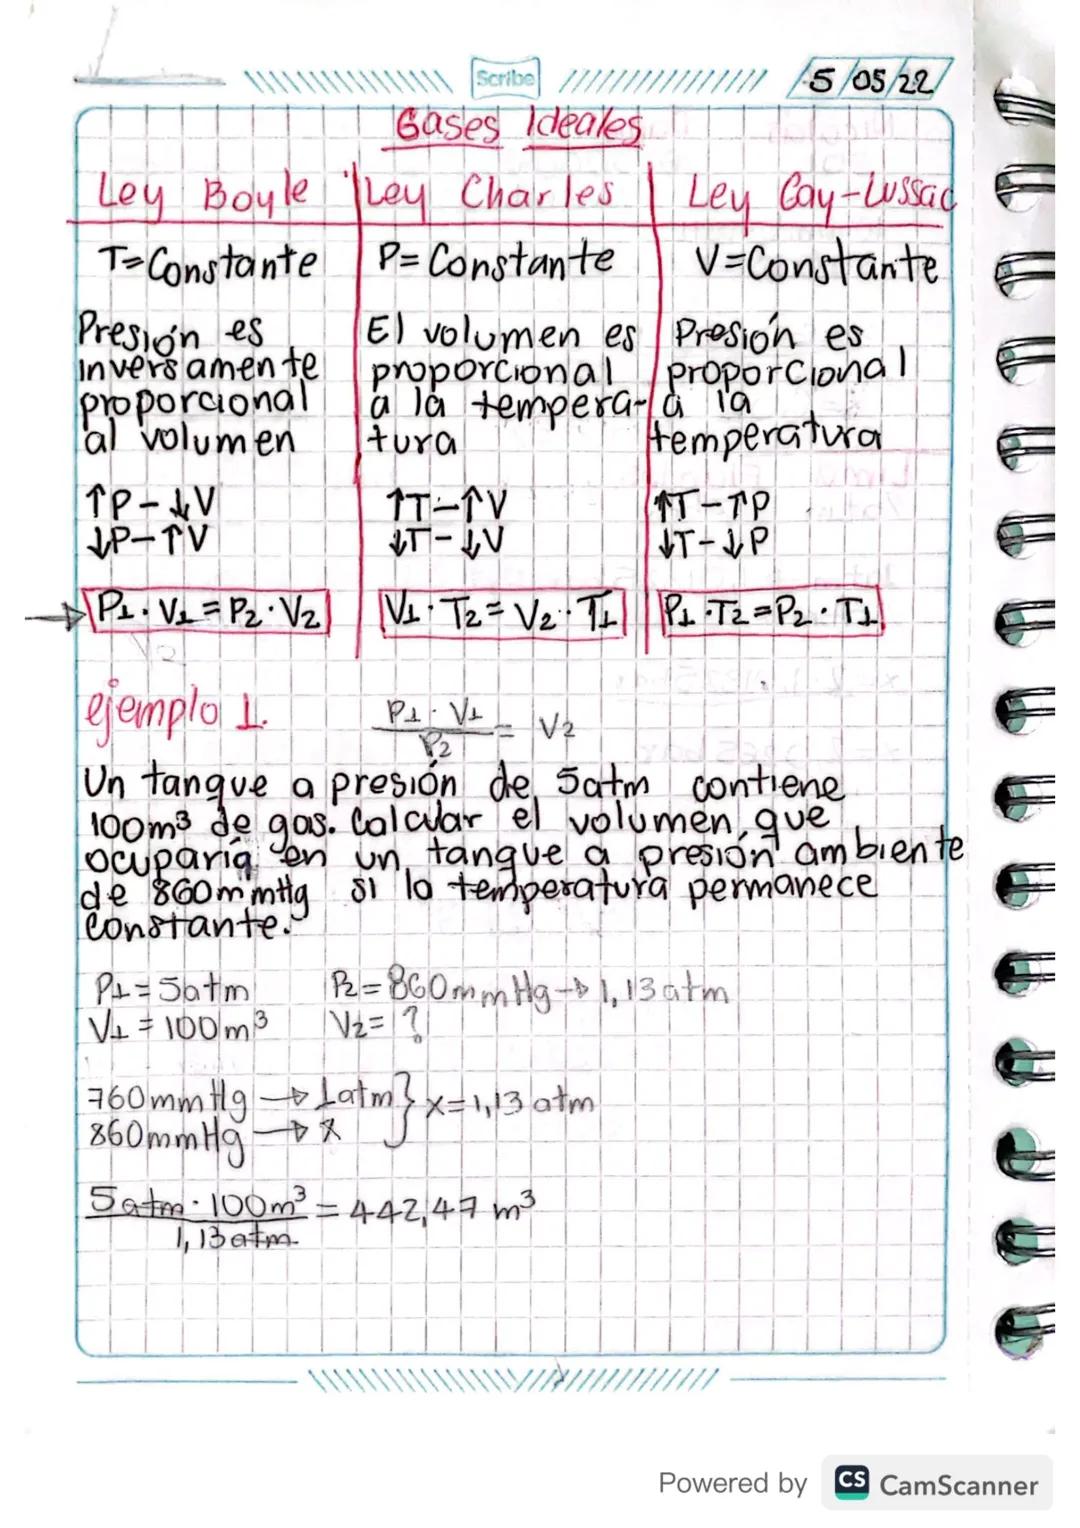 Scribe
5/05/22
Gases Ideales
Ley Boyle
Ley Charles
Ley Gay-Lussac
T=Constante
P=Constante
V=Constante
Presión es
inversamente
proporcional
al volumen
El volumen es
proporcional
a la tempera-
tura
Presión es
proporcional
a la
temperatura
↑P-↓V
↓P-↑V
↑T-↑V
↓T-↓V
↑T-↑P
↓T-↓P
→ P1·V1=P2·V2
V1·T2=V2·T1
P1·T2=P2·T1
ejemplo 1.
P1·V1/P2 = V2
Un tanque a presión de 5atm contiene
100m³ de gas. Calcular el volumen que
ocuparía en un tanque a presión ambiente
de 860mmHg si la temperatura permanece
constante.
P1=5atm
P2=860mmHg→1,13atm
V1=100m³
V2=?
760mmHg→1atm} x=1,13atm
860mmHg→x
5atm·100m³/1,13atm = 442,47 m³
Powered by CS CamScanner